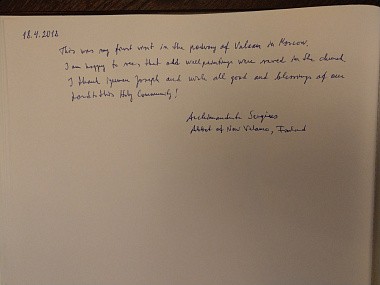 18.4.2012
This was my first visit in the podvorye of Valaam in Moscow.
I am happy to see, that old wallpaintings were saved in the church
I thank igumen Joseph and wish all good and blessings of our
Lord to this Holy Community!
Archimandrite Sergius
Abbot of New Valamo, Finland